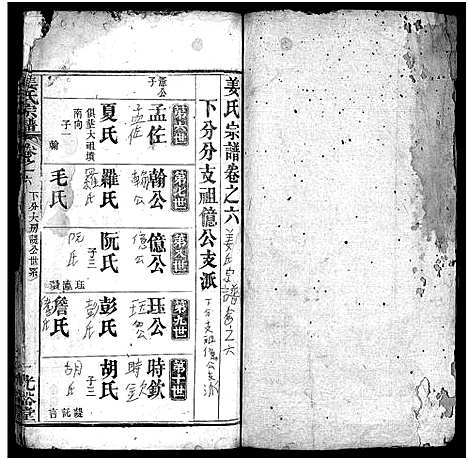 姜氏宗譜卷之六
姜氏宗譜卷之六
下分分支祖億公支派
下分支祖億公支派
第六世
孟佐
孟佐
夏氏
俱葬大祖墳
南向
子一
翰
第七世
翰公
翰公
羅氏
羅氏
毛氏
第八世
億公
億公
阮氏
阮氏
子三
珏
第九世
珏公
珏公
彭氏
彭氏
詹氏
第十世
時欽
時欽
胡氏
胡氏
子三
姜氏宗譜
卷之六
下分大房
公世系
光裕堂